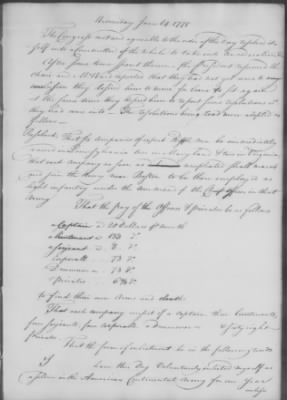 Wednesday June 14. 1775
The Congress met and agreeable to the order of the day resolved it
self into a Committee of the Whole to take into consideration
After some time spent therein the President resumed the
chair and Mr Ward reported that they had not yet come to any
resolution they desired him to move for leave to sit again
at the same time they desired him to report some resolutions
they had come into The resolutions being read were adopted as
follows
Resolved That six companies of expert Rifle men be immediately
raised in Pensylvania two in Maryland & two in Virginia
that each company as soon as compleated shall march
and join the Army near Boston to be there employed as
light infantry under the command of the Chief Officer in that
Army
That the pay of the Officers & privates be as follows
a Captain a 20 dollars
a Lieutenant a 13⅓ do
a Serjeant a 8 do
a Corporal 7⅓ do
a Drummer 7⅓ do
Privates 6⅔ do
to find their own Arms and cloaths
That each company consist of a captain three lieutenants
four serjeants, four corporals a drummer sixty eight
privates
That the form of inlistment be in the following words
I have this day Voluntarily inlisted myself as
a soldier in the American Continental Army for one Year
unless